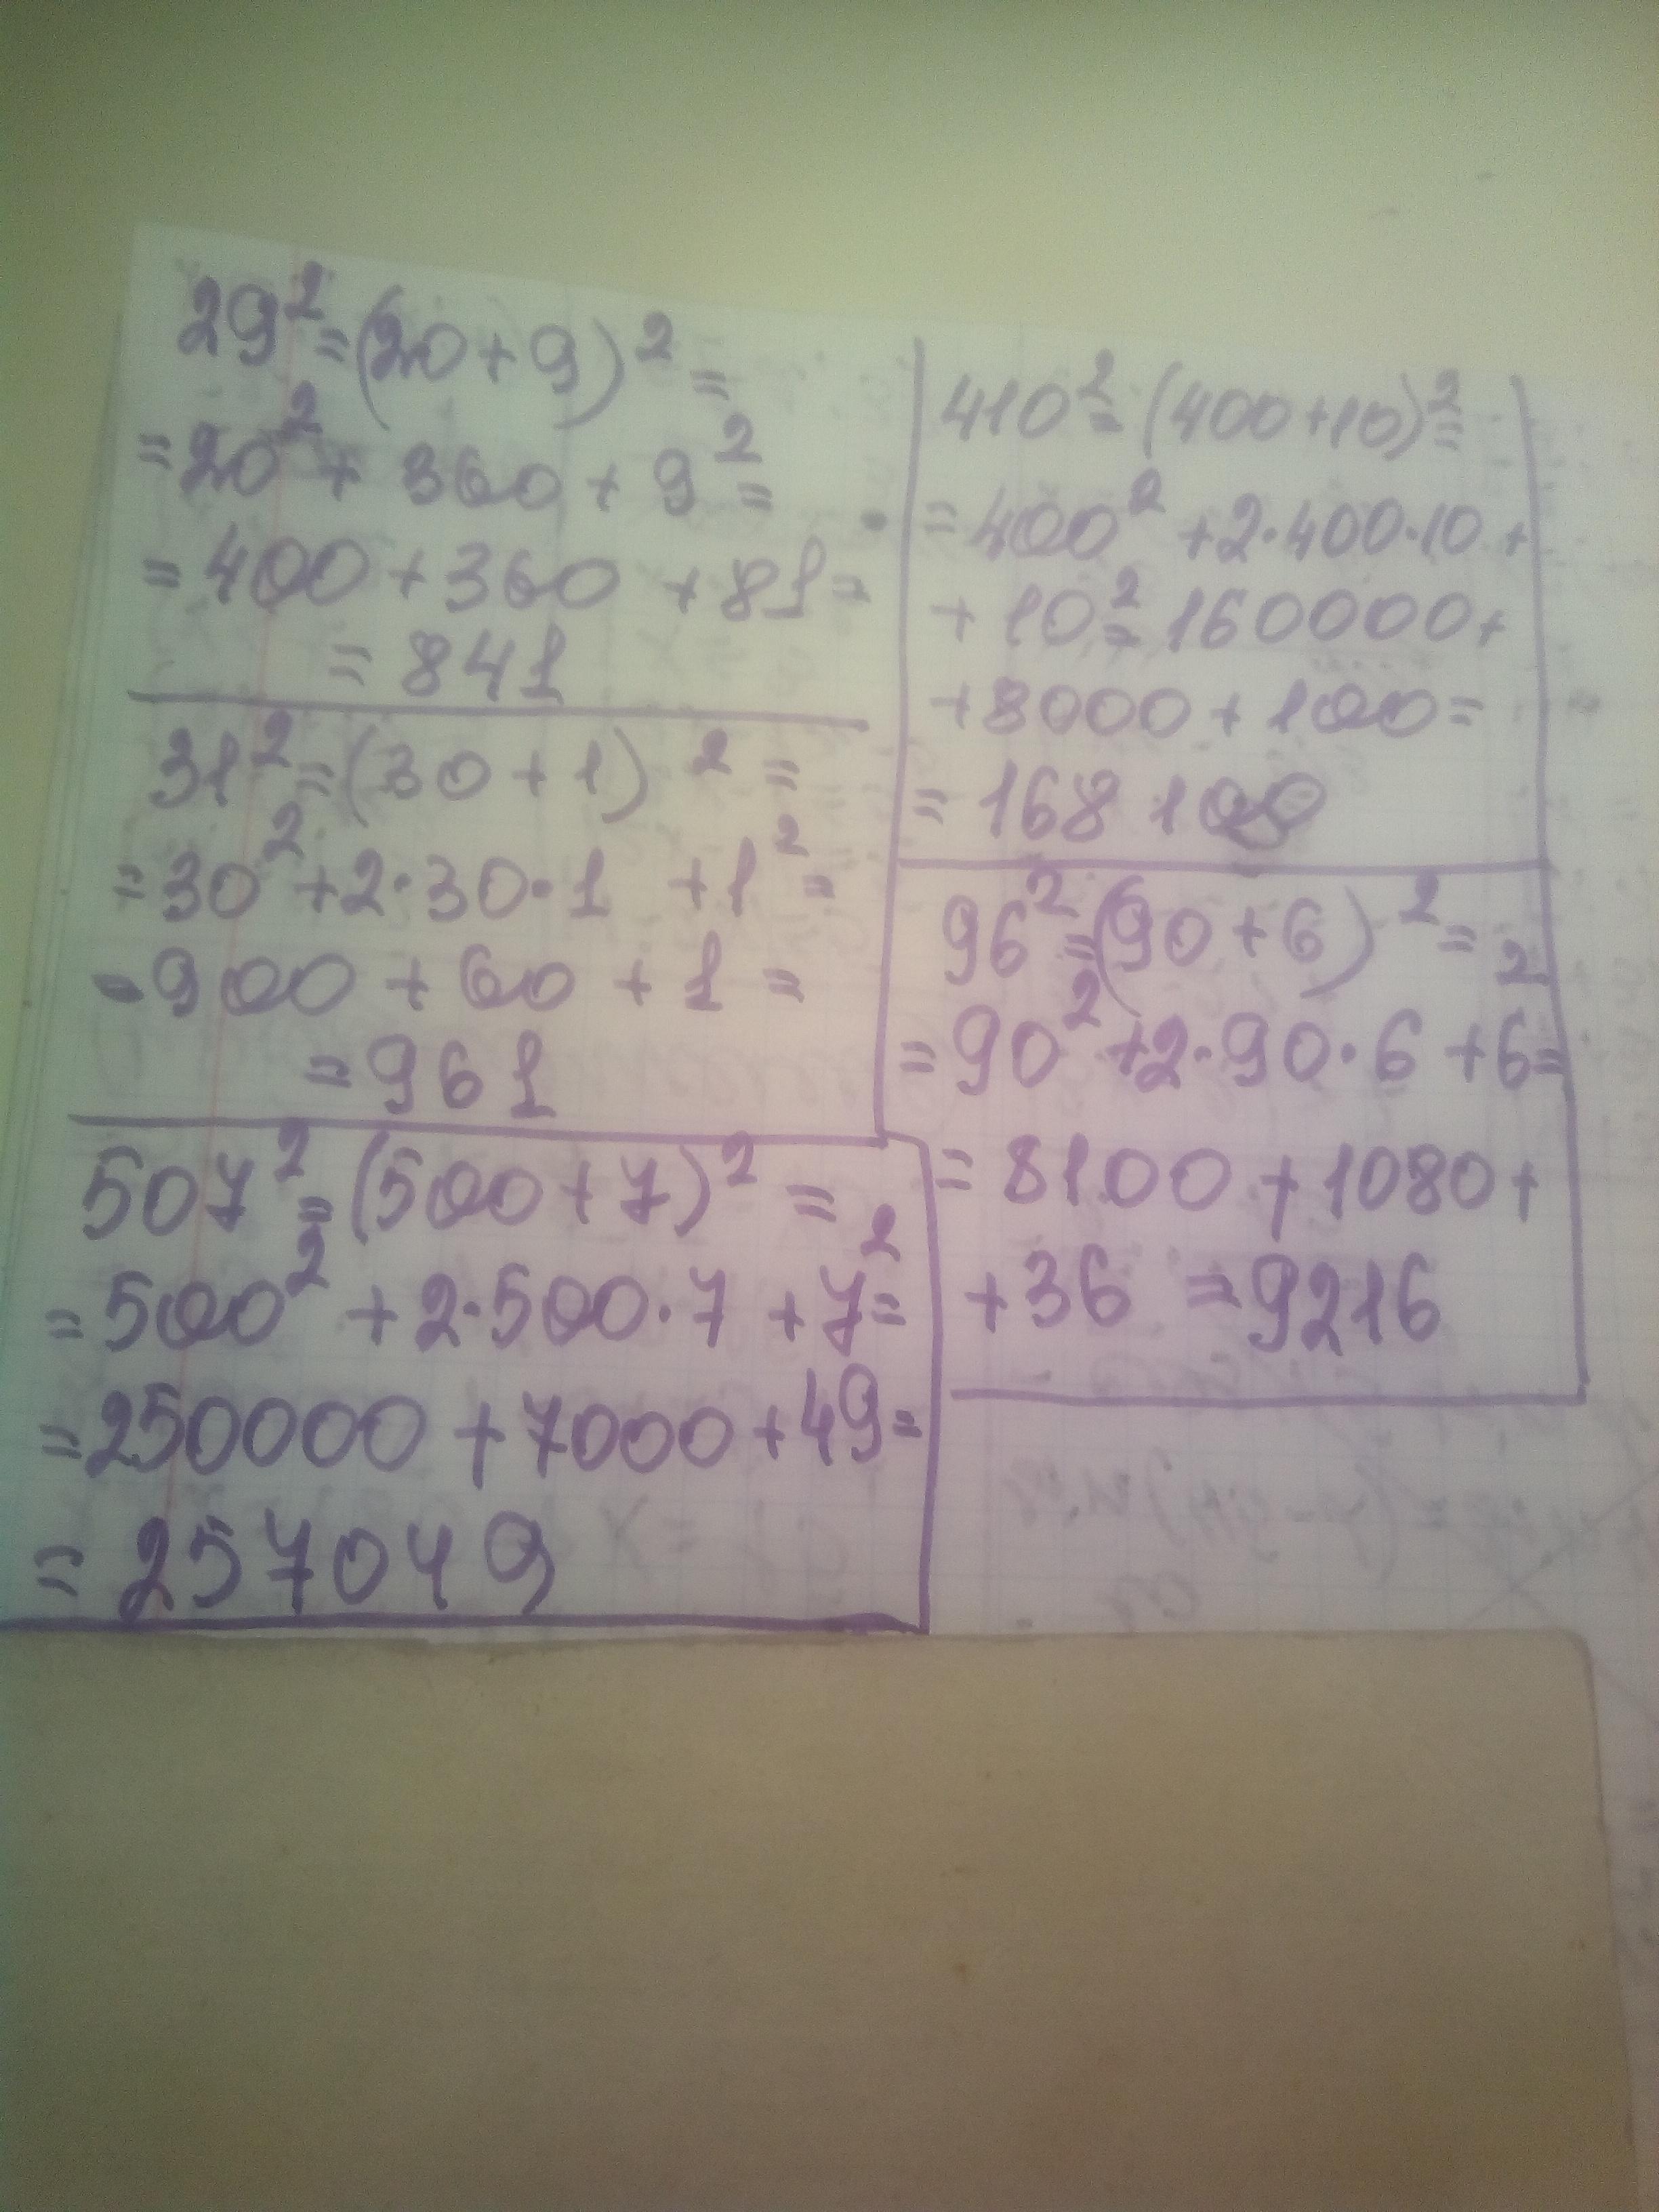 29² = (20 + 9)² =
= 20² + 360 + 9² =
= 400 + 360 + 81 =
= 841
31² = (30 + 1)² =
= 30² + 2·30·1 + 1² =
= 900 + 60 + 1 =
= 961
507² = (500 + 7)² =
= 500² + 2·500·7 + 7² =
= 250000 + 7000 + 49 =
= 257049
410² = (400 + 10)² =
= 400² + 2·400·10 +
+ 10² = 160000 +
+ 8000 + 100 =
= 168 100
96² = (90 + 6)² =
= 90² + 2·90·6 + 6² =
= 8100 + 1080 +
+ 36 = 9216